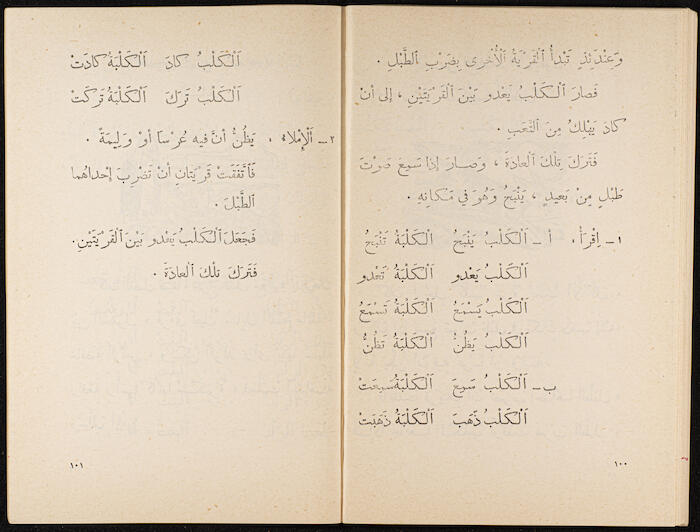 وَعِنْدَئِذٍ تَبْدَأُ ٱلْقَرْيَةُ ٱلْأُخْرَى بِضَرْبِ ٱلطَّبْلِ .
فَصَارَ ٱلْكَلْبُ يَعْدُو بَيْنَ ٱلْقَرْيَتَيْنِ ، إِلَى أَنْ
كَادَ يَهْلِكُ مِنَ ٱلتَّعَبِ .
فَتَرَكَ تِلْكَ ٱلْعَادَةَ ، وَصَارَ إِذَا سَمِعَ صَوْتَ
طَبْلٍ مِنْ بَعِيدٍ ، يَنْبَحُ وَهُوَ فِي مَكَانِهِ .
١ - إِقْرَأْ : أ - ٱلْكَلْبُ يَنْبَحُ ٱلْكَلْبَةُ تَنْبَحُ
ٱلْكَلْبُ يَعْدُو ٱلْكَلْبَةُ تَعْدُو
ٱلْكَلْبُ يَسْمَعُ ٱلْكَلْبَةُ تَسْمَعُ
ٱلْكَلْبُ يَظُنُّ ٱلْكَلْبَةُ تَظُنُّ
ب - ٱلْكَلْبُ سَمِعَ ٱلْكَلْبَةُ سَمِعَتْ
ٱلْكَلْبُ ذَهَبَ ٱلْكَلْبَةُ ذَهَبَتْ
١٠٠
ٱلْكَلْبُ كَادَ ٱلْكَلْبَةُ كَادَتْ
ٱلْكَلْبُ تَرَكَ ٱلْكَلْبَةُ تَرَكَتْ
٢ - ٱلْإِمْلَاء : يَظُنُّ أَنَّ فِيهِ عُرْسًا أَوْ وَلِيمَةً .
فَٱتَّفَقَتْ قَرْيَتَانِ أَنْ تَضْرِبَ إِحْدَاهُمَا
ٱلطَّبْلَ .
فَجَعَلَ ٱلْكَلْبُ يَعْدُو بَيْنَ ٱلْقَرْيَتَيْنِ .
فَتَرَكَ تِلْكَ ٱلْعَادَةَ .
١٠١